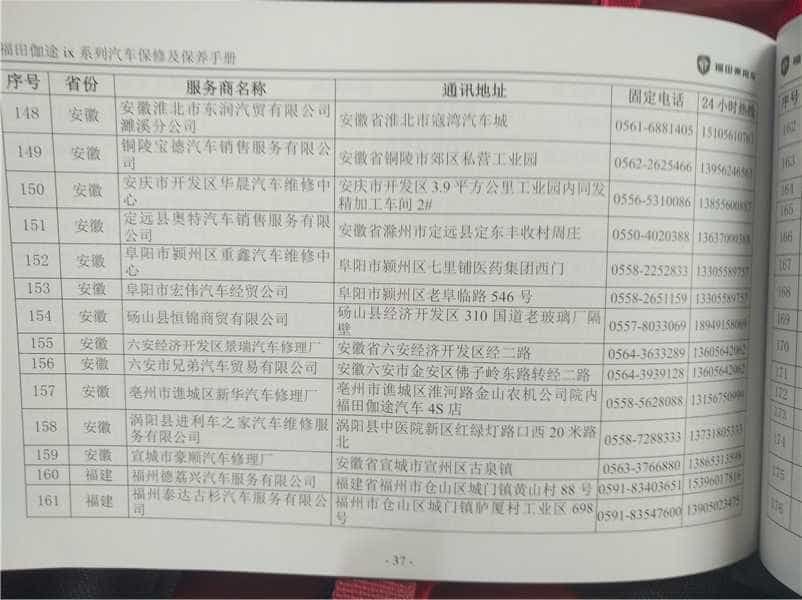 福田伽途 ix 系列汽车保修及保养手册
福田乘用车
序号 省份 服务商名称 通讯地址 固定电话 24 小时热线
148 安徽 安徽淮北市东润汽贸有限公司 安徽省淮北市寇湾汽车城 0561-6881405
濉溪分公司
149 安徽 铜陵宝德汽车销售服务有限公 安徽省铜陵市郊区私营工业园 0562-2625466 13956246563
司
150 安徽 安庆市开发区华晨汽车维修中 安庆市开发区 3.9 平方公里工业园内同发 0556-5310086 13855600887
心 精加工车间 2#
151 安徽 定远县奥特汽车销售服务有限 安徽省滁州市定远县定东丰收村周庄 0550-4020388
公司
152 安徽 阜阳市颍州区重鑫汽车维修中 阜阳市颍州区七里铺医药集团西门 0558-2252833 13305589757
心
153 安徽 阜阳市宏伟汽车经贸公司 阜阳市颍州区老阜临路 546 号 0558-2651159 13305589757
154 安徽 砀山县恒锦商贸有限公司 砀山县经济开发区 310 国道老玻璃厂隔 0557-8033069 18949158069
壁
155 安徽 六安经济开发区景瑞汽车修理厂 安徽省六安经济开发区经二路 0564-3633289 13605642062
156 安徽 六安市兄弟汽车贸易有限公司 安徽六安市金安区佛子岭东路转经二路 0564-3939128 13605642062
157 安徽 亳州市谯城区新华汽车修理厂 亳州市谯城区淮河路金山农机公司院内 0558-5628088 13156750999
福田伽途汽车 4S 店
158 安徽 涡阳县进利车之家汽车维修服 涡阳县中医院新区红绿灯路口西 20 米路 0558-7288333 13731805333
务有限公司 北
159 安徽 宣城市豪顺汽车修理厂 安徽省宣城市宣州区古泉镇 0563-3766880
160 福建 福州德荔兴汽车服务有限公司 福建省福州市仓山区城门镇黄山村 88 号 0591-83403651 15396017816
161 福建 福州泰达古杉汽车服务有限公 福州市仓山区城门镇胪厦村工业区 698 0591-83547600 13905023475
司 号
- 37 -
福
序号
162
163
164
165
166
167
168
169
170
171
172
173
174
175
176